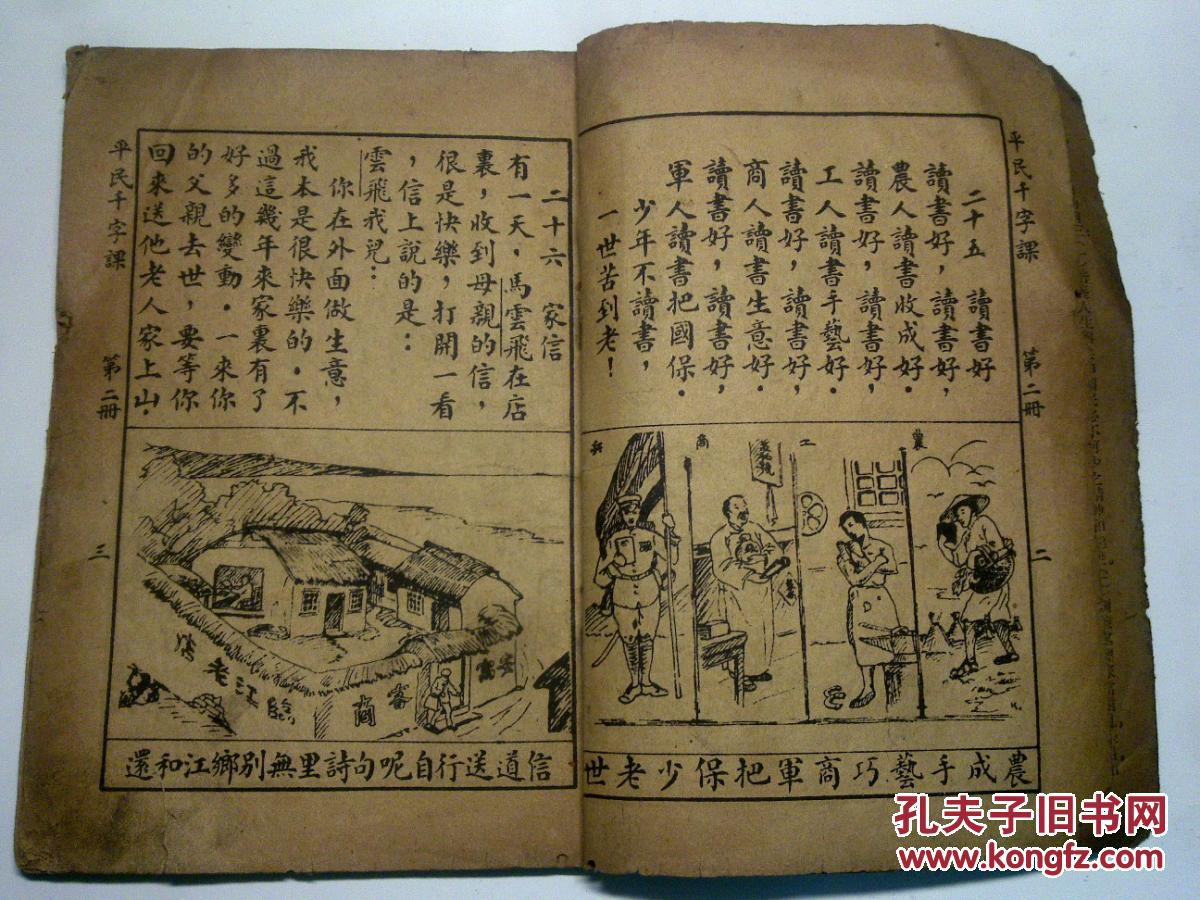 平民千字課
第二冊
二
二十五 讀書好
讀書好，讀書好，
農人讀書收成好．
讀書好，讀書好，
工人讀書手藝好．
讀書好，讀書好，
商人讀書生意好．
讀書好，讀書好，
軍人讀書把國保．
少年不讀書，
一世苦到老！
農
工
商
兵
農成手藝巧商軍把保少老世
二十六 家信
有一天，馬雲飛在店
裏，收到母親的信，
很是快樂，打開一看
，信上說的是：
雲飛我兒：
你在外面做生意，
我本是很快樂的．不
過這幾年來家裏有了
好多的變動．一來你
的父親去世，要等你
回來送他老人家上山．
安寓
客商
臨江老店
信道送行自呢句詩里無別鄉江和還
平民千字課
第二冊
三
孔夫子旧书网
www.kongfz.com